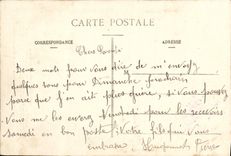 CARTE POSTALE
CORRESPONDANCE
ADRESSE
Chers Parents
Deux mots pour vous dire de m'envoyer
quelques sous pour Dimanche prochain
parce que j'en ai plus guère, si vous pouvez
Vous me les envoyer Vendredi pour les recevoir
Samedi en bon poste. Votre fils qui vous
embrasse